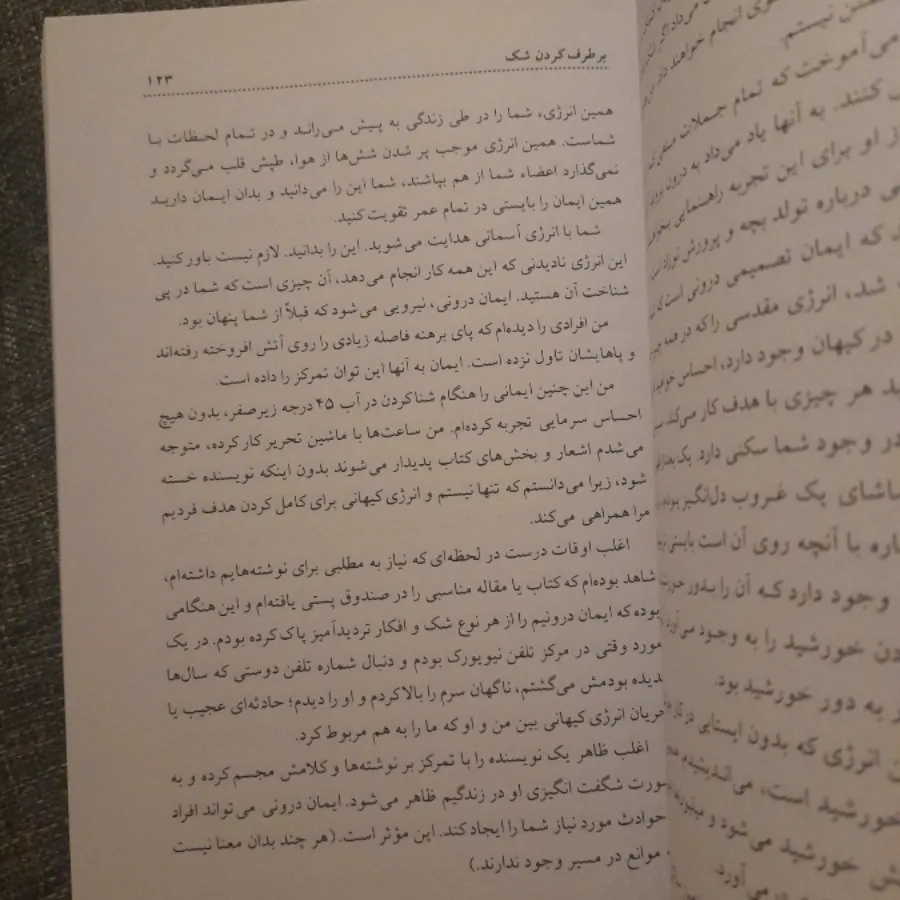 برطرف کردن شک
۱۲۳
همین انرژی، شما را در طی زندگی به پیش می‌راند و در تمام لحظات با
شماست. همین انرژی موجب پر شدن شش‌ها از هوا، طپش قلب می‌گردد و
نمی‌گذارد اعضاء شما از هم بپاشند، شما این را می‌دانید و بدان ایمان دارید
همین ایمان را بایستی در تمام عمر تقویت کنید.
شما با انرژی آسمانی هدایت می‌شوید. این را بدانید. لازم نیست باور کنید.
این انرژی نادیدنی که این همه کار انجام می‌دهد، آن چیزی است که شما در پی
شناخت آن هستید. ایمان درونی، نیرویی می‌شود که قبلاً از شما پنهان بود.
من افرادی را دیده‌ام که پای برهنه فاصله زیادی را روی آتش افروخته رفته‌اند
و پاهایشان تاول نزده است. ایمان به آنها این توان تمرکز را داده است.
من این چنین ایمانی را هنگام شنا کردن در آب ۴۵ درجه زیرصفر، بدون هیچ
احساس سرمایی تجربه کرده‌ام. من ساعت‌ها با ماشین تحریر کار کرده، متوجه
می‌شدم اشعار و بخش‌های کتاب پدیدار می‌شوند بدون اینکه نویسنده خسته
شود، زیرا می‌دانستم که تنها نیستم و انرژی کیهانی برای کامل کردن هدف فردیم
مرا همراهی می‌کند.
اغلب اوقات درست در لحظه‌ای که نیاز به مطلبی برای نوشته‌هایم داشته‌ام،
شاهد بوده‌ام که کتاب یا مقاله مناسبی را در صندوق پستی یافته‌ام و این هنگامی
بوده که ایمان درونیم را از هر نوع شک و افکار تردیدآمیز پاک کرده بودم. در یک
مورد وقتی در مرکز تلفن نیویورک بودم و دنبال شماره تلفن دوستی که سال‌ها
ندیده بودمش می‌گشتم، ناگهان سرم را بالا کردم و او را دیدم؛ حادثه‌ای عجیب یا
جریان انرژی کیهانی بین من و او که ما را به هم مربوط کرد.
اغلب ظاهر یک نویسنده را با تمرکز بر نوشته‌ها و کلامش مجسم کرده و به
صورت شگفت انگیزی او در زندگیم ظاهر می‌شود. ایمان درونی می‌تواند افراد
حوادث مورد نیاز شما را ایجاد کند. این مؤثر است. (هر چند بدان معنا نیست
موانع در مسیر وجود ندارند.)
نیستم.
می‌آموخت که تمام جملات منفی
کنند. به آنها یاد می‌داد به درون
از او برای این تجربه راهنمایی
درباره تولد بچه و پرورش نوزاد
که ایمان تصمیمی درونی است
شد، انرژی مقدسی را که در همه
در کیهان وجود دارد، احساس
هر چیزی با هدف کار می‌کند
در وجود شما سکنی دارد. یک
یک غروب دل‌انگیز
با آنچه روی آن است بایستی
وجود دارد که آن را بدور
خورشید را به وجود
به دور خورشید بود.
انرژی که بدون ایستایی در
خورشید است، می‌اندیشیدم
خورشید می‌شود و
می‌آورد.